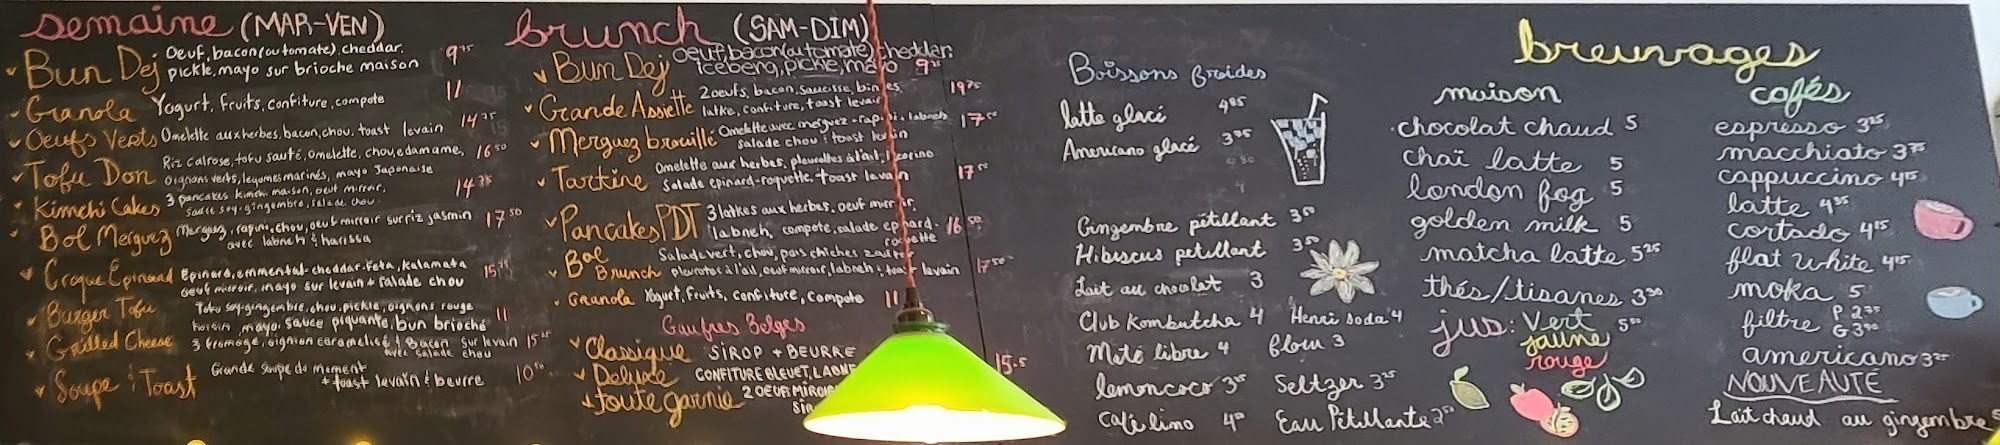 semaine (MAR-VEN)
Bun Dej Oeuf, bacon (ou tomate), cheddar, 9 75
pickle, mayo sur brioche maison
Granola Yogurt, fruits, confiture, compote 11
Oeufs Verts Omelette aux herbes, bacon, chou, toast levain 14 75
Tofu Don Riz calrose, tofu sauté, omelette, chou, edamame, 16 50
oignons verts, legumes marinés, mayo Japonaise
Kimchi Cakes 3 pancakes kimchi maison, oeuf mirroir, 14 75
sauce soy-gingembre, salade chou
Bol Merguez Merguez, rapini, chou, oeuf mirroir sur riz jasmin 17 50
avec labneh & harissa
Croque Epinard Epinard, emmental-cheddar-feta, kalamata
oeuf miroir, mayo sur levain + salade chou
Burger Tofu Tofu soy-gingembre, chou, pickle, oignons rouge 11
hoisin, mayo, sauce piquante, bun brioché
Grilled Cheese 3 fromage, oignion caramelisé & Bacon sur levain
avec salade chou
Soupe & Toast Grande soupe du moment
+ toast levain & beurre
brunch (SAM-DIM)
Bun Dej oeuf, bacon (ou tomate) chedder,
iceberg, pickle, mayo
Grande Assiette 2 oeufs, bacon, saucisse, 19 75
latke, confiture, toast levain
Merguez brouillé Omelette avec merguez-rapini, labneh 17 50
salade chou & toast levain
Tartine Omelette aux herbes, pleurottes à l'ail, 17 50
Salade epinard-roquette, toast levain
Pancakes PDT 3 latkes aux herbes, oeuf mirroir,
labneh, compote, salade epinard- 16 50
roquette
Bol Brunch Salade vert, chou, pois chiches
pleurotes à l'ail, oeuf miroir, labneh & toast levain 17 50
Granola Yogurt, fruits, confiture, compote 11
Gaufres Belges
Classique SIROP + BEURRE
Deluxe CONFITURE BLEUET,
toute garnie 2 OEUF MIROIR
15.5
breuvages
Boissons froides
latte glacé
Americano glacé
Gingembre pétillant 3 50
Hibiscus petillant 3 50
Lait au chocolat 3
Club Kombutcha 4 Henri soda 4
Maté libre 4
lemoncoco Seltzer
Café lino Eau Pétillante
maison
chocolat chaud 5
chaï latte 5
london fog 5
golden milk 5
matcha latte 5 25
thés/tisanes
jus: Vert
jaune
rouge
cafés
espresso 3 25
macchiato 3 75
cappuccino
latte
cortado
flat white
moka 5
filtre P
G
americano
NOUVEAUTÉ
Lait chaud au gingembre